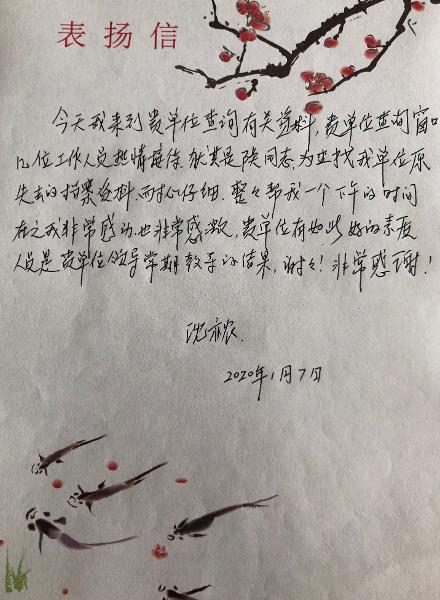 表扬信
今天我来到贵单位查询有关资料,贵单位查询窗口
几位工作人员热情接待,尤其是陆同志,为查找我单位原
失去的档案资料,耐心仔细,整整帮我一个下午的时间
在之我非常感动也非常感激,贵单位有如此好的素质
人员是贵单位领导常期教导的结果,谢谢!非常感谢!
沈亦农.
2020年1月7日